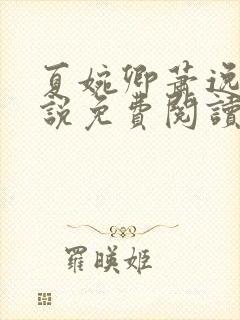 夏婉卿蕭逸
說免費閱讀
羅暎姬